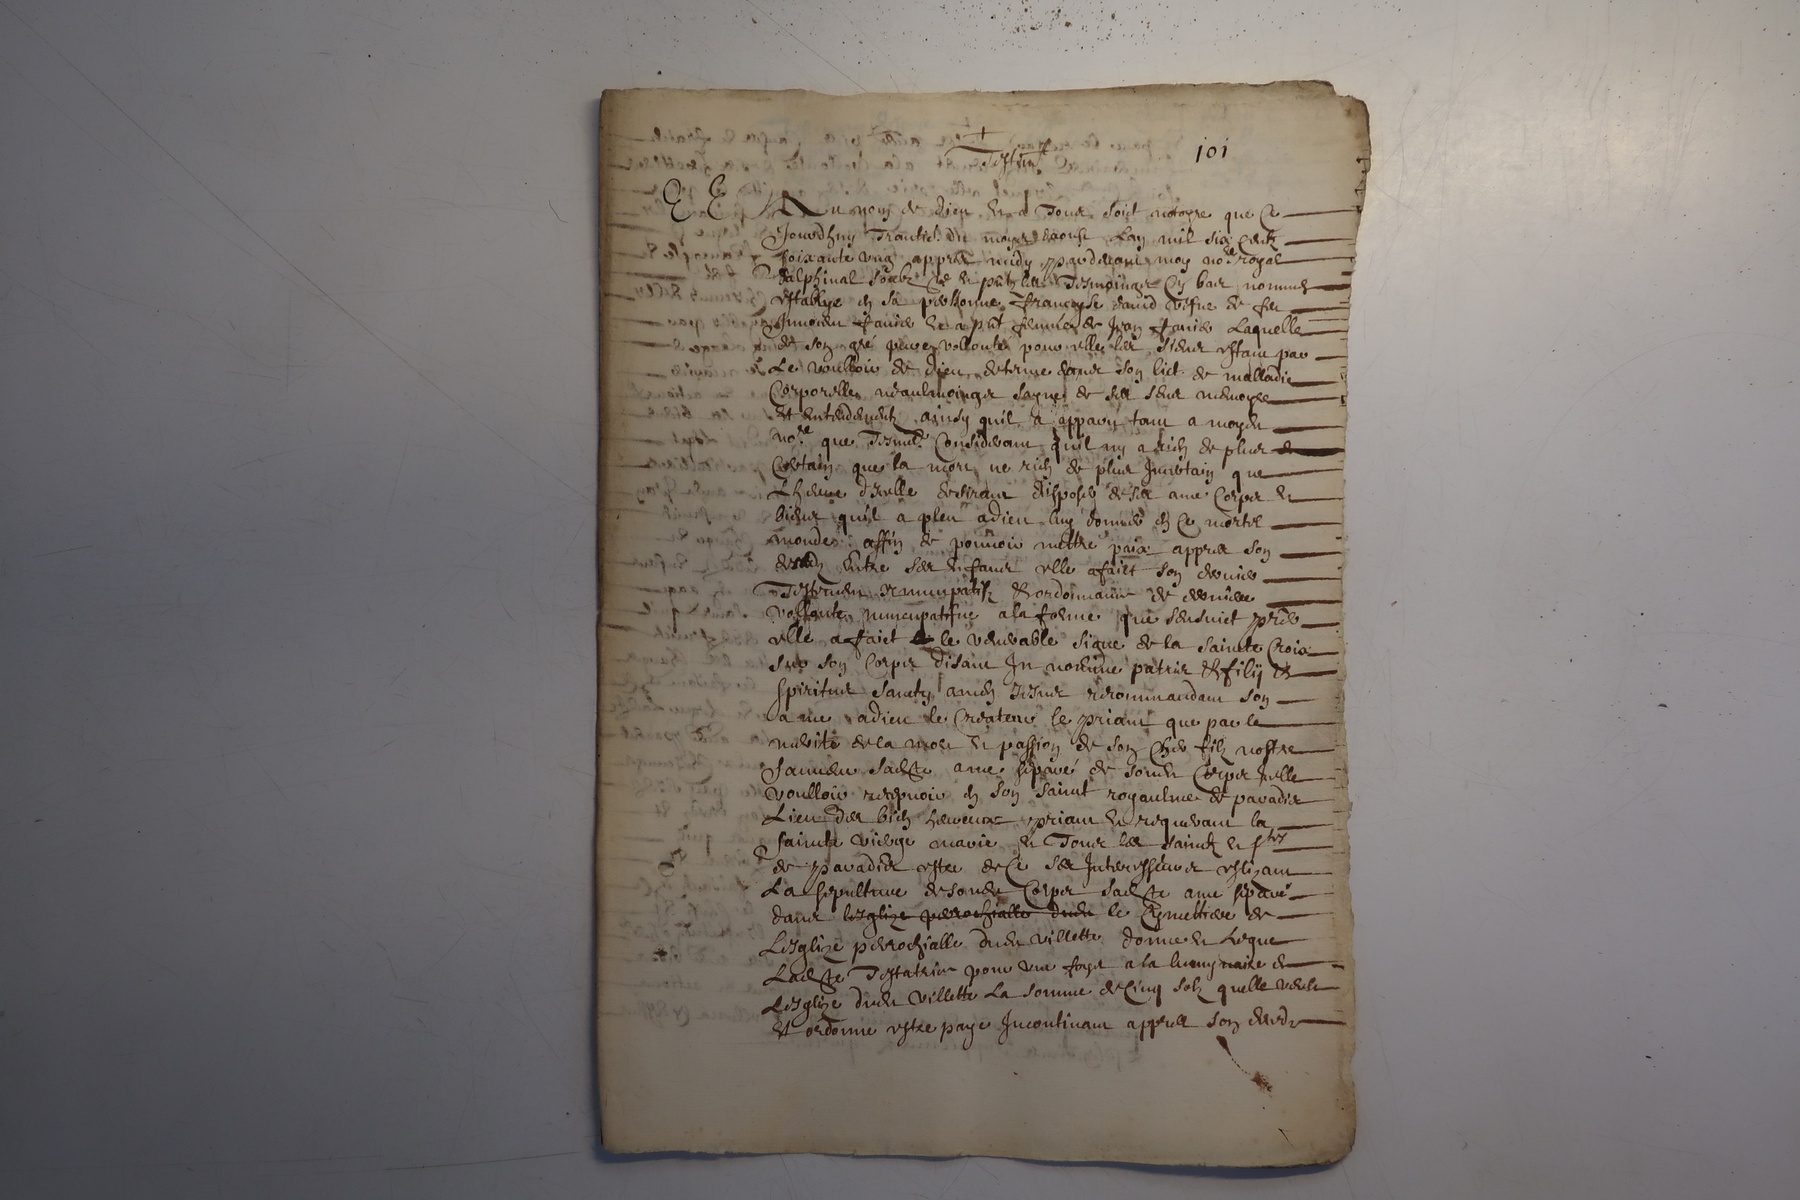 101
Testamt
E E Au nom de Dieu et a Tous soict notoyre que Ce
Jourdhuy Trantie du moys daoust Lan mil six centz
soixante ung appres midy pardevant moy nore royal
dalphinal soubzne et pntz les Tesmoingz Cy bas nommes
establye en sa personne Françoyse vefve de feu
et a pnt femme de Jean Laquelle
de son gre pure vollonte pour elle les siens estant par
Le voulloir de dieu detenue dans son lict de malladie
Corporelle neaulmoingz sayne de ses sens memoyre
Et entendement ainsy quil a apparu tant a moydt
nore que Tesmt Considerant quil ny a rien de plus
Certain que la mort ne rien de plus Incertain que
Lheure dicelle desirant disposer de ses ame Corps et
biens quil a pleu adieu luy donner en Ce mortel
monde affin de pouvoir mettre paix appres son
deces entre ses enfans elle afaict son dernier
Testament nuncupatif et ordonnance de derniere
vollonte nuncupatifve ala forme que sensuict premier
elle a faict le venerable signe de la saincte Croix
sur son Corps disant In nomine patris et filij et
spiritus sancty amen recommandant son
ame adieu le Createur le priant que par le
merite de la mort et passion de son cher filz nostre
Sauveur sadte ame separe de sondt Corps Icelle
voulloir recepvoir en son sainct royaulme de paradis
Lieu des bien heureux priant et requerant la
saincte vierge marie et Tous les sainctz et stes
de paradis estre de Ce ses Intercesseurs eslizant
La sepulture de sondt Corps sadte ame separe
dans lesglize perrochialle dudt le Cymettiere de
Lesglize perrochialle dudt villette donne et Legue
Ladte Testatrix pour une foys a la luminaire de
Lesglize dudt villette La somme de Cinq solz quelle veult
Et ordonne estre paye Incontinant appres son deces